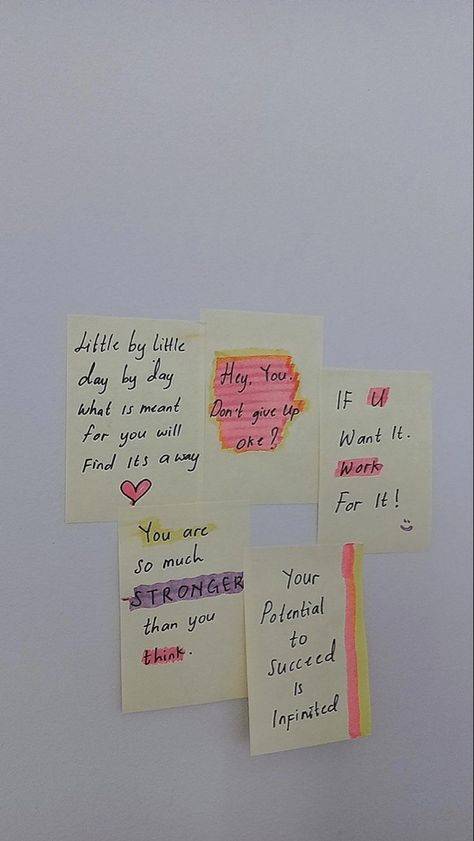 Little by little
day by day
what is meant
for you will
Find its a way
Hey, You.
Don't give Up
oke?
IF U
Want It.
Work
For It!
You are
so much
STRONGER
than you
think.
Your
Potential
to
Succeed
Is
Infinited